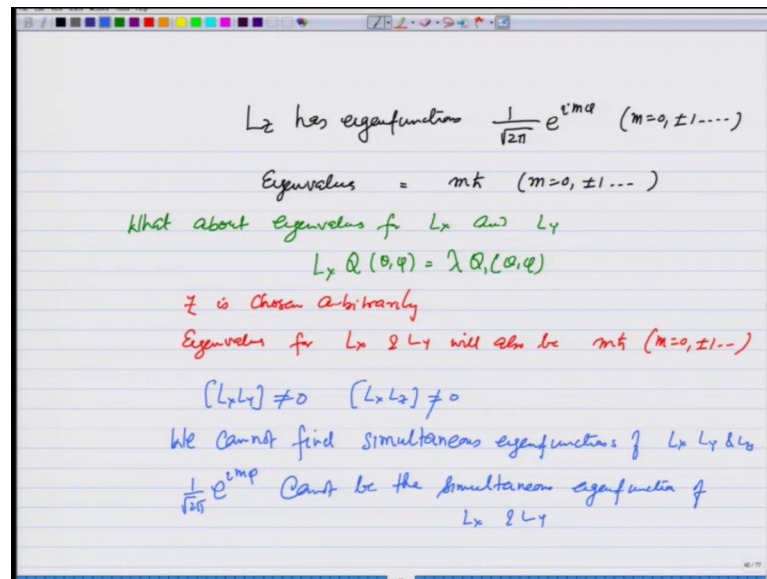 Lz has eigenfunctions 1/√2π e^imφ (m=0, ±1----)
Eigenvalues = mħ (m=0, ±1--- )
What about eigenvalues for Lx and Ly
Lx Q (θ,φ) = λ Q(θ,φ)
Z is chosen arbitrarily
Eigenvalues for Lx & Ly will also be mħ (m=0, ±1--)
[LxLy] ≠0 [LxLz] ≠0
We cannot find simultaneous eigenfunctions of Lx Ly & Lz
1/√2π e^imφ Cannot be the simultaneous eigenfunction of
Lx & Ly
40 / 77